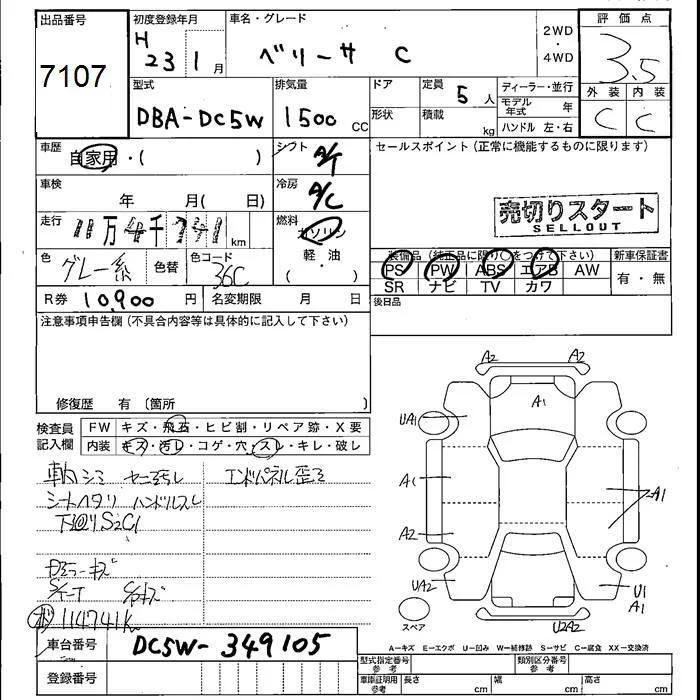 出品番号 初度登録年月 車名・グレード 評価点
7107 H 23 1月 ベリーサ C 2WD ・ 4WD 3.5
型式 排気量 ドア 定員 5人 ディーラー・並行 外装 内装
DBA-DC5W 1500 CC 形状 積載 kg モデル年式 年 C C
ハンドル 左・右
車歴 自家用・( ) シフト A/T セールスポイント(正常に機能するものに限ります)
車検 年 月( 日) 冷房 A/C
売切りスタート
SELLOUT
走行 11万4千741km 燃料 ガソリン
軽・油
( )
装備品(純正品に限り○をつけて下さい) 新車保証書
色 グレー系 色替 色コード 36C PS PW ABS エアB AW 有・無
SR ナビ TV カワ
R券 10,900円 名変期限 月 日 後日品
注意事項申告欄(不具合内容等は具体的に記入して下さい)
修復歴 有〔箇所 〕
検査員 FW キズ・飛石・ヒビ割・リペア跡・X要
記入欄 内装 キズ・汚レ・コゲ・穴・スレ・キレ・破レ
A2 A2
A1
UA1
A1 A1
A2
UA2 U1
A1
スペア U2A2
シミ ヤニ汚レ エンドパネル歪ミ
シートヘタリ ハンドルスレ
下回りS2C1
キズ
114741K
A－キズ E－エクボ U－凹み W－補修跡 S－サビ C－腐食 XX－交換済
車台番号 DC5W-349105
登録番号
型式指定番号 参考 類別区分番号 参考
車庫証明用 参考 長さ cm 幅 cm 高さ cm